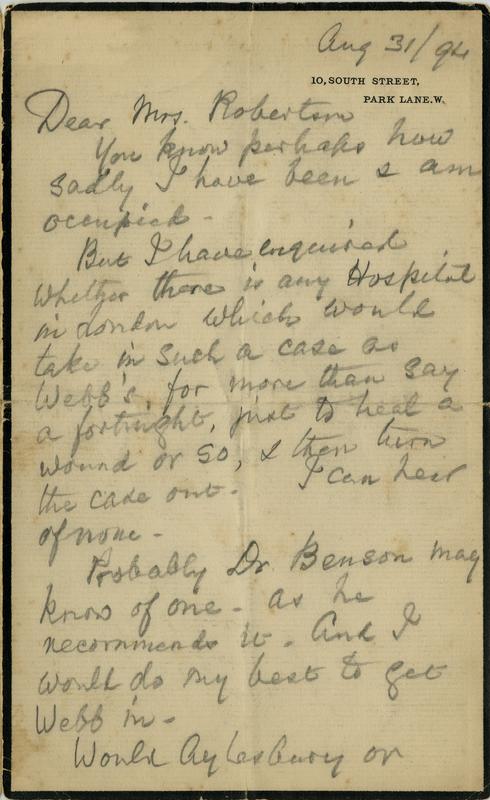 Aug 31/94
10, SOUTH STREET,
PARK LANE. W.
Dear Mrs. Robertson
You know perhaps how
sadly I have been & am
occupied -
But I have enquired
whether there is any Hospital
in London which would
take in such a case as
Webb's, for more than say
a fortnight, just to heal a
wound or so, & then turn
the case out. I can hear
of none -
Probably Dr. Benson may
know of one - as he
recommends it. And I
would do my best to get
Webb in -
Would Aylesbury or